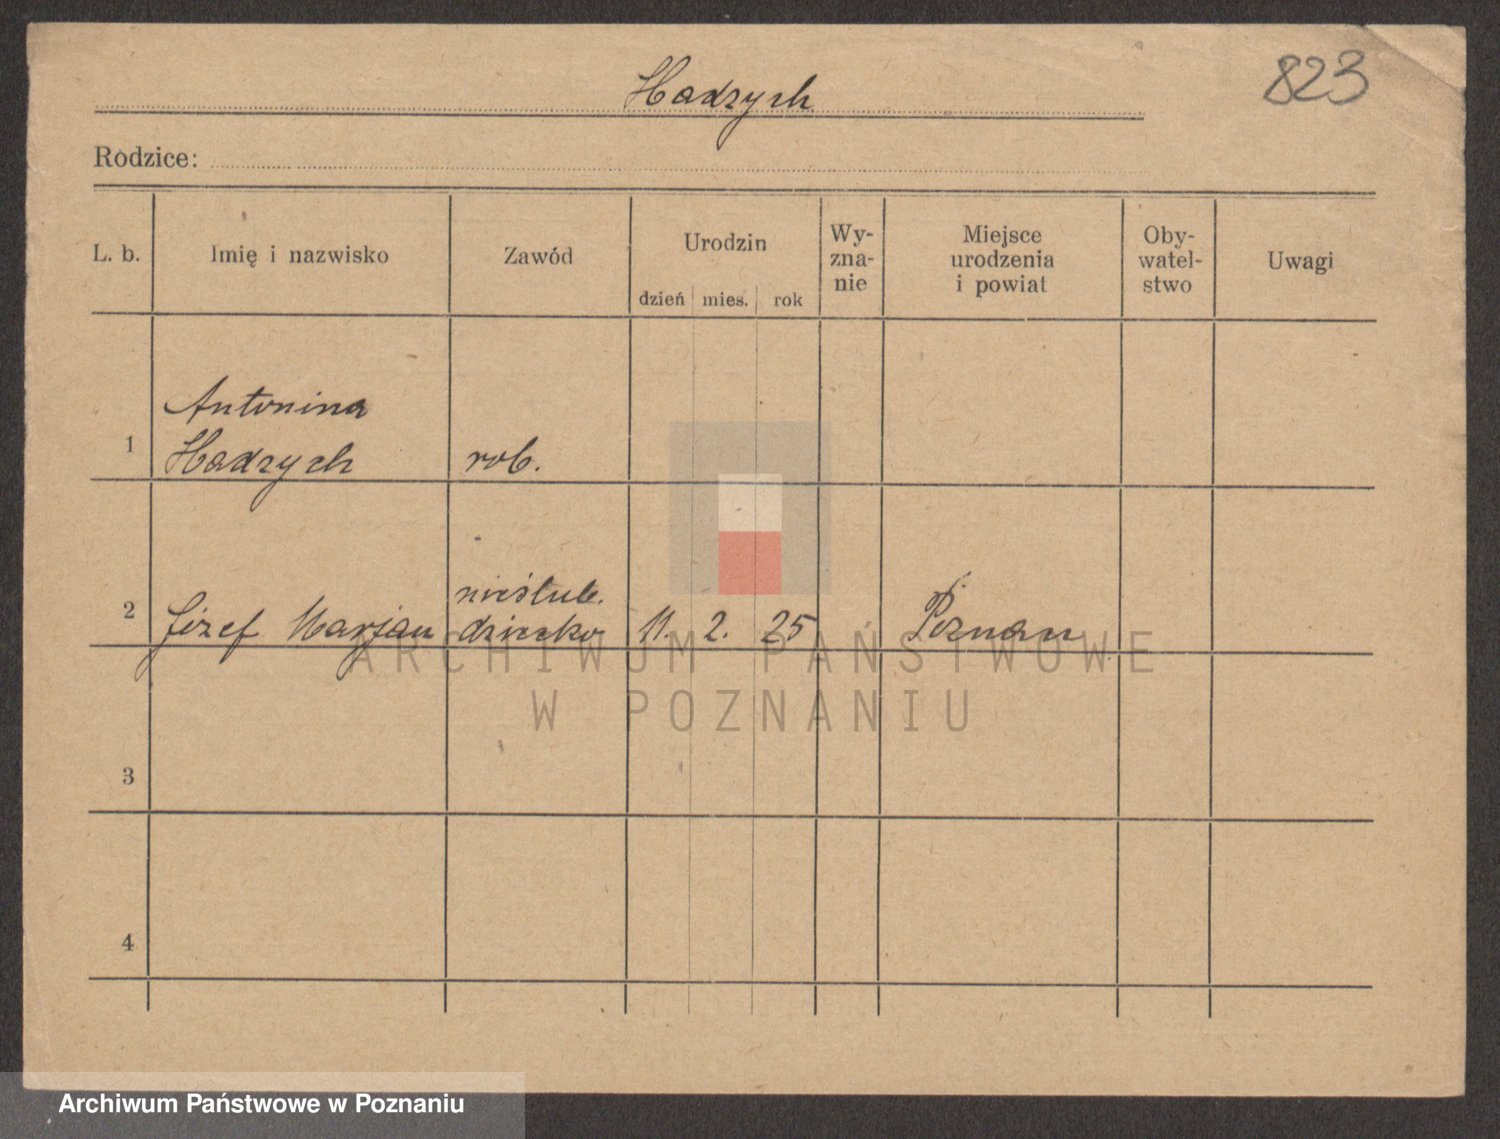 Hadzych
823
Rodzice:
L. b.
Imię i nazwisko
Zawód
Urodzin
dzień mies. rok
Wy-
zna-
nie
Miejsce
urodzenia
i powiat
Oby-
watel-
stwo
Uwagi
1
Antonina
Hadzych
rob.
2
Józef Marjan
nieślub.
dziecko
11. 2. 25
Poznan
ARCHIWUM PAŃSTWOWE
W POZNANIU
3
4
Archiwum Państwowe w Poznaniu